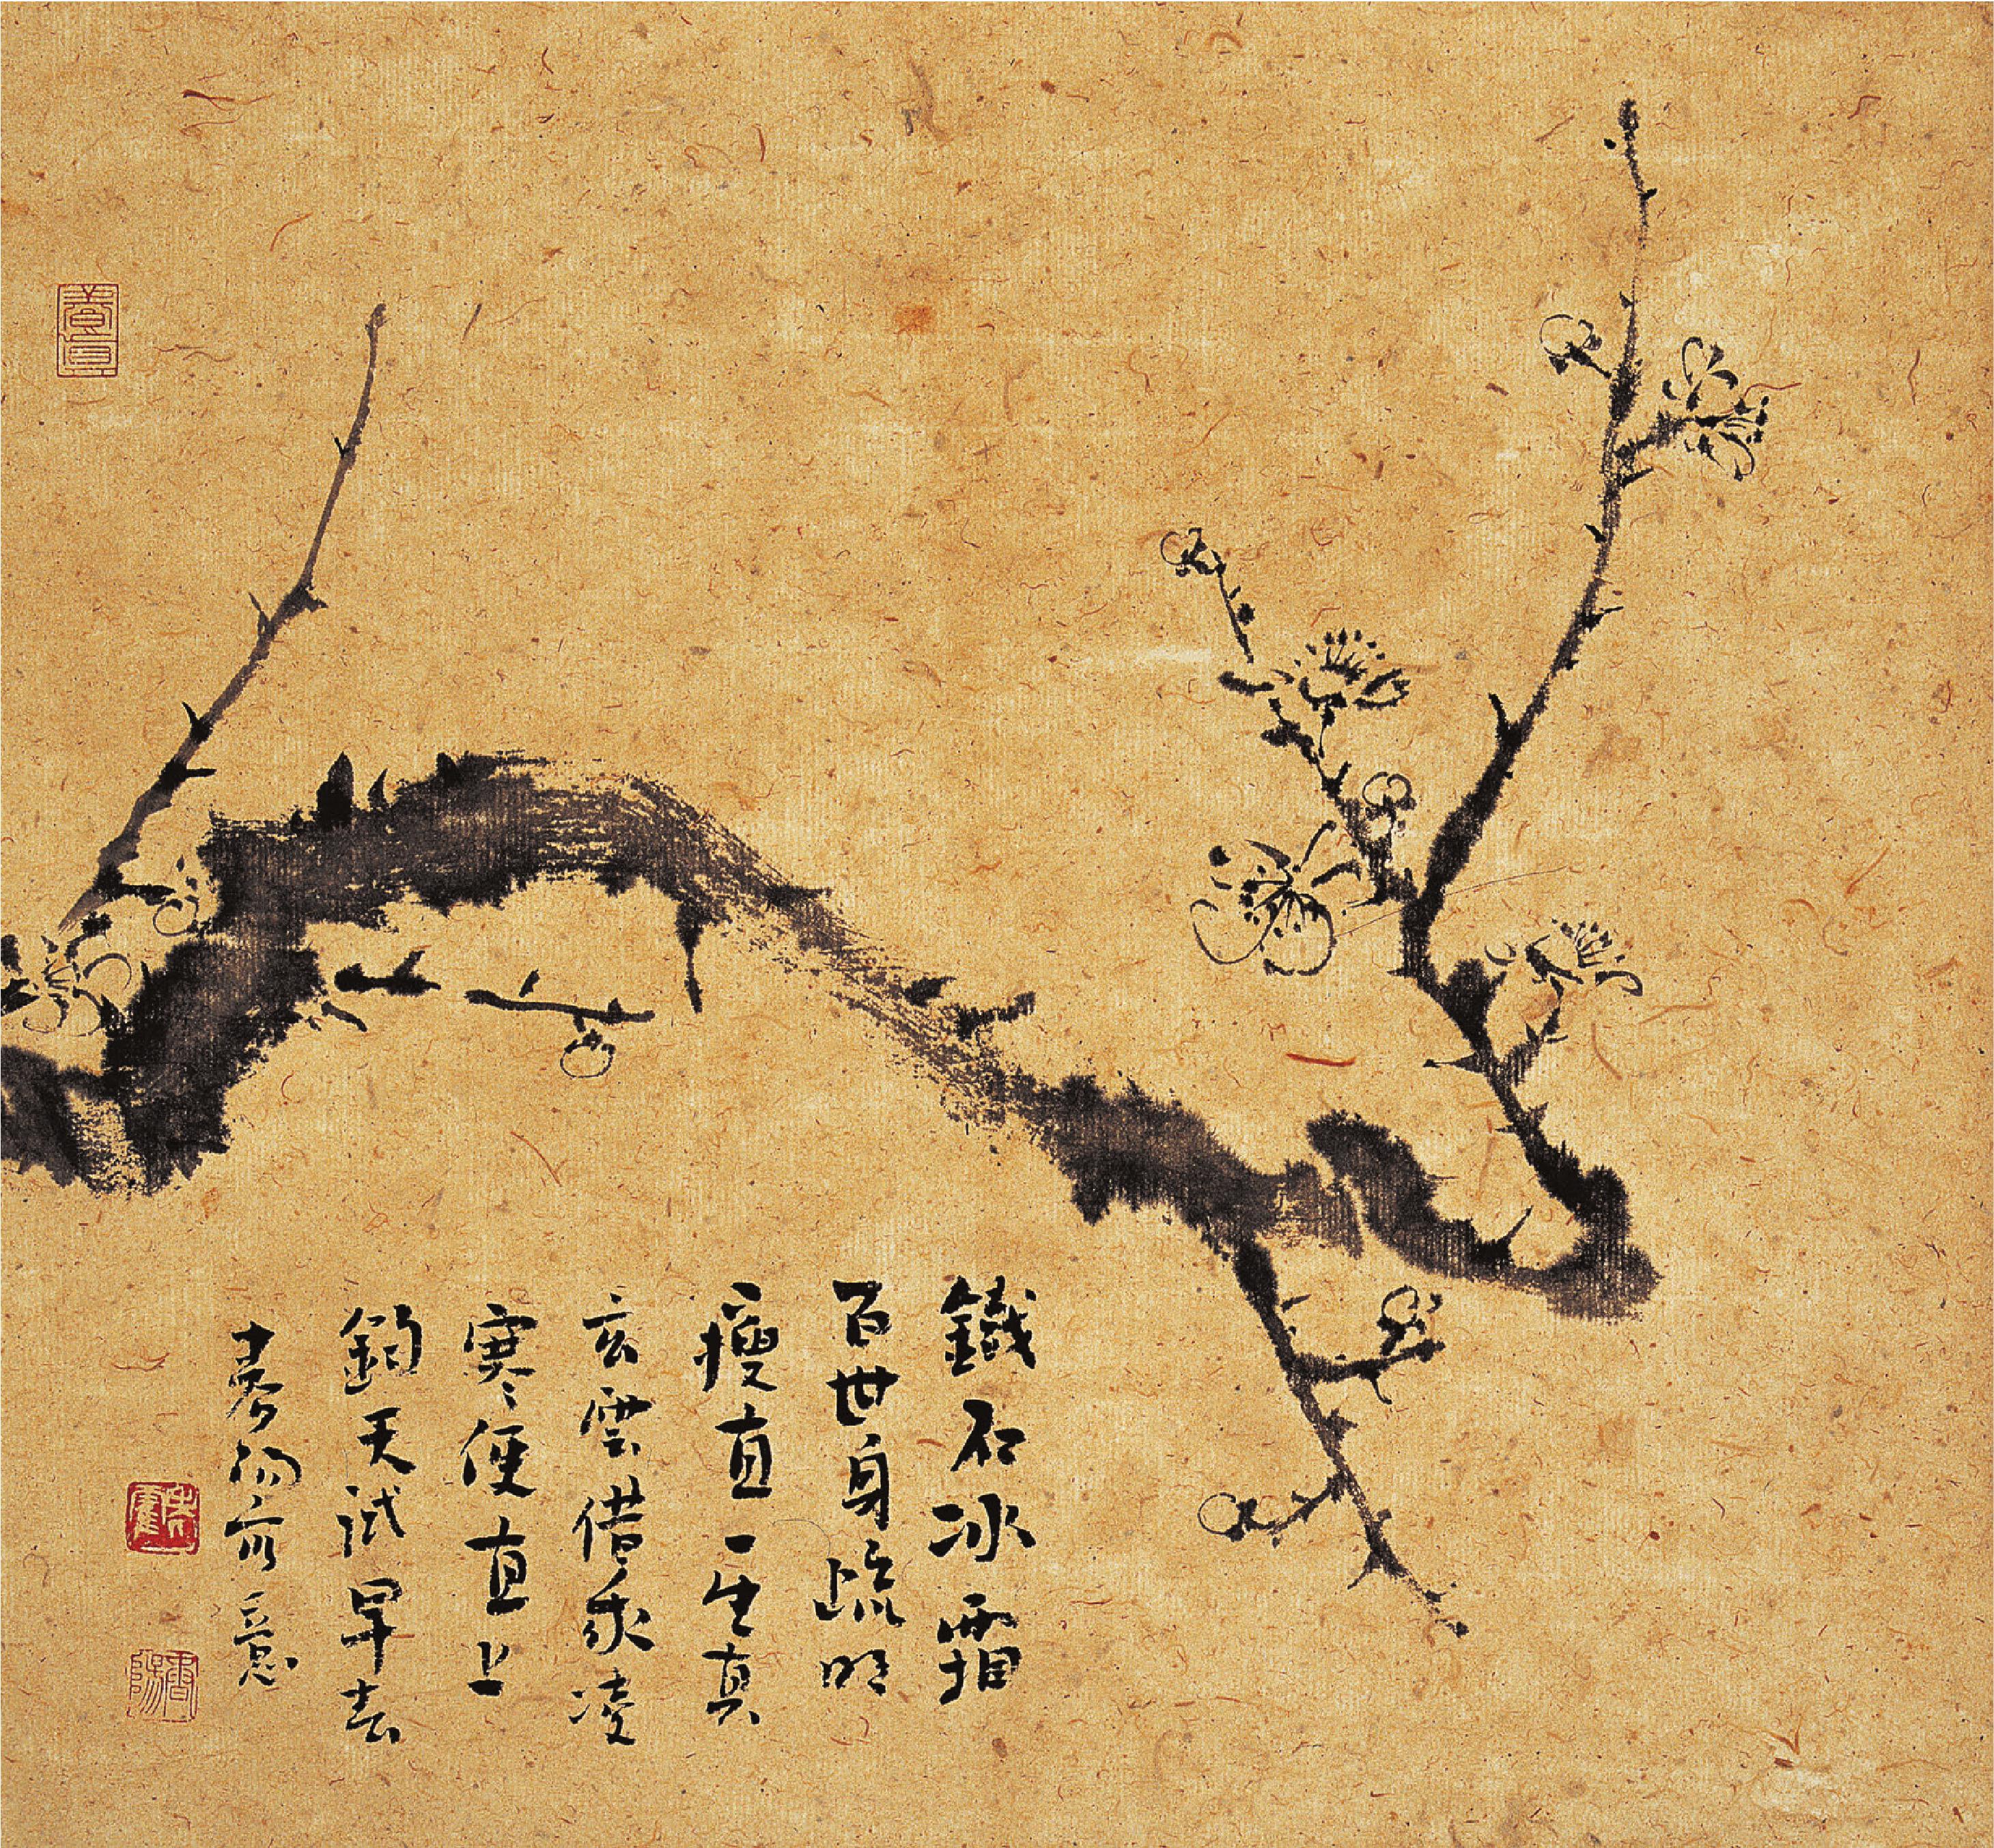 鐵石冰霜
百世身疏明
瘦直一生真
玄雲借我凌
寒便直上
鈞天試早春
意